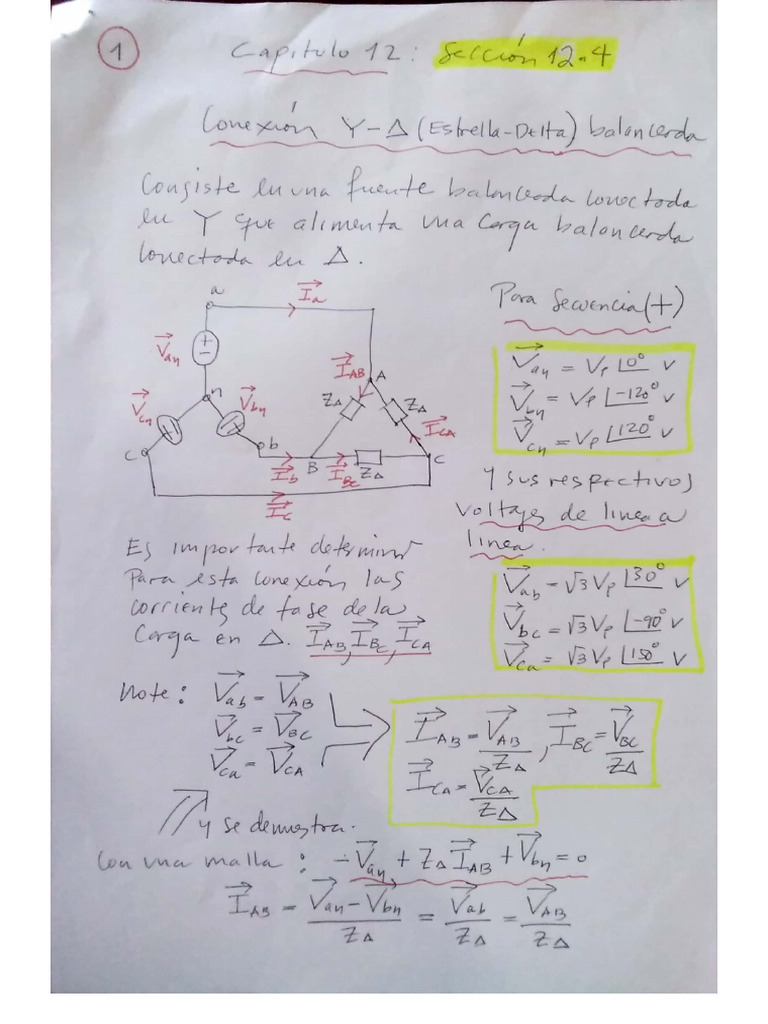 1
Capítulo 12: Sección 12.4
Conexión Y-Δ (Estrella-Delta) balanceada
Consiste en una fuente balanceada conectada
en Y que alimenta una carga balanceada
conectada en Δ.
a
I⃗a
V⃗an
n
V⃗cn
V⃗bn
c
b
I⃗b
I⃗c
I⃗AB
A
ZΔ
ZΔ
I⃗CA
B
I⃗BC
ZΔ
C
Para secuencia (+)
V⃗an = Vp∠0° v
V⃗bn = Vp∠-120° v
V⃗cn = Vp∠120° v
y sus respectivos
voltajes de linea a
linea.
V⃗ab = √3 Vp∠30° v
V⃗bc = √3 Vp∠-90° v
V⃗ca = √3 Vp∠150° v
Es importante determinar
para esta conexión las
corrientes de fase de la
carga en Δ. I⃗AB, I⃗BC, I⃗CA
Note: V⃗ab = V⃗AB
V⃗bc = V⃗BC
V⃗ca = V⃗CA
I⃗AB = V⃗AB/ZΔ, I⃗BC = V⃗BC/ZΔ
I⃗CA = V⃗CA/ZΔ
y se demostra.
Con una malla: -V⃗an + ZΔ I⃗AB + V⃗bn = 0
I⃗AB = (V⃗an - V⃗bn)/ZΔ = V⃗ab/ZΔ = V⃗AB/ZΔ